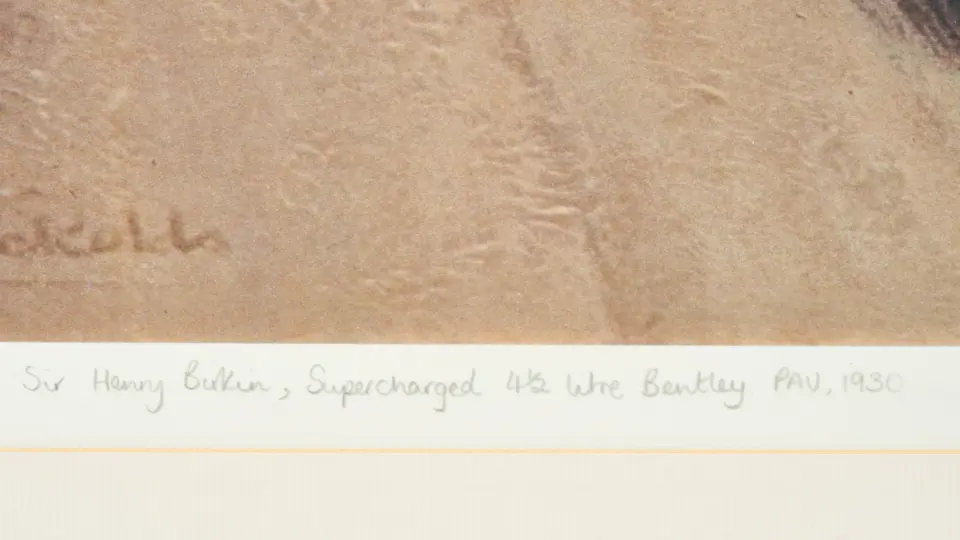 Sir Henry Birkin, Supercharged 4½ litre Bentley PAU, 1930